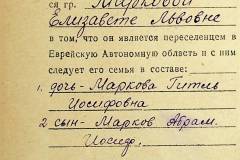 ся гр. Марковой
Елизавете Львовне
в том, что он является переселенцем в
Еврейскую Автономную область и с ним
следует его семья в составе:
1. дочь - Маркова Гитль
Иосифовна
2 сын - Марков Абрам
Иосиф.